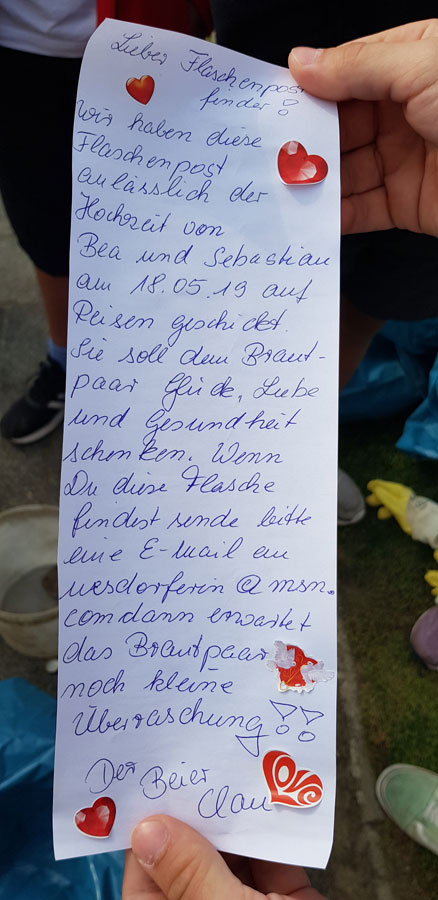 Lieber Flaschenpost
finder!
Wir haben diese
Flaschenpost
anlässlich der
Hochzeit von
Bea und Sebastian
am 18.05.19 auf
Reisen geschickt.
Sie soll dem Braut-
paar Glück, Liebe
und Gesundheit
schenken. Wenn
Du diese Flasche
findest sende bitte
eine E-Mail an
uesdorferin@msn.
com dann erwartet
das Brautpaar
noch kleine
Überraschung!!
Der Beier
Clan